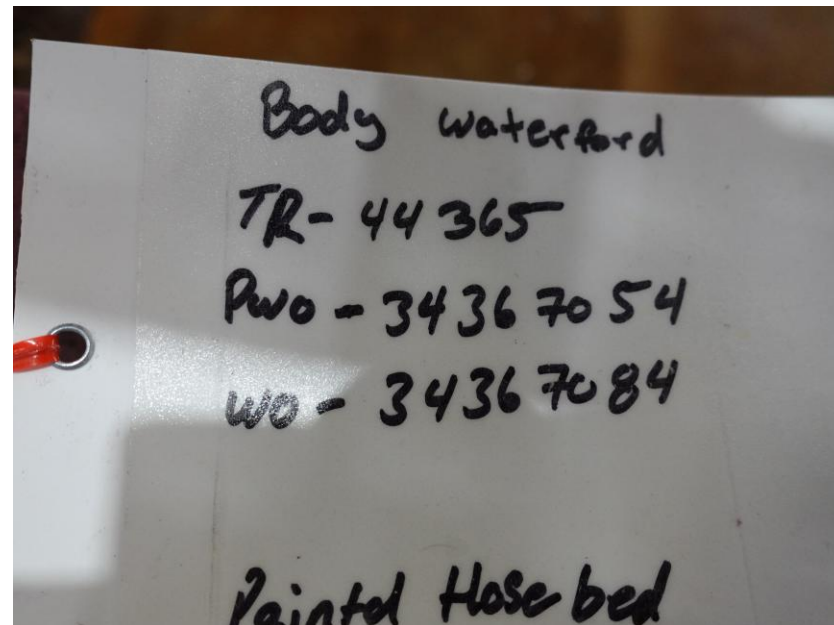 Body waterford
TR- 44365
Pwo - 34367054
wo - 34367084
Paintd Hose bed